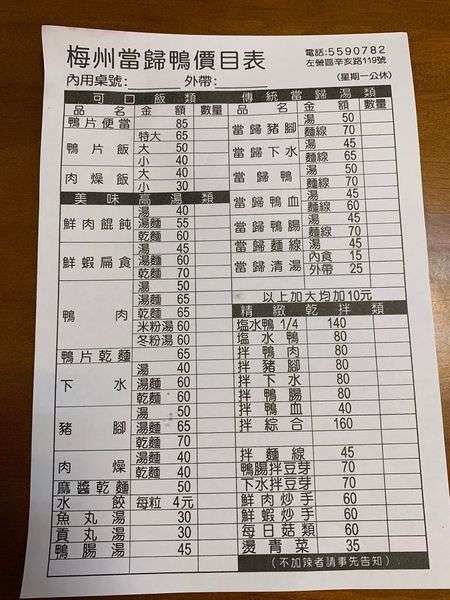 梅州當歸鴨價目表
電話:5590782
左營區辛亥路119號
內用桌號:______外帶:
(星期一公休)
可口飯類
品名 金額 數量
鴨片便當 85
鴨片飯 特大 65
大 50
小 40
肉燥飯 大 40
小 30
美味高湯類
鮮肉餛飩 湯 40
湯麵 55
乾麵 60
鮮蝦扁食 湯 45
湯麵 60
乾麵 70
鴨肉 湯 50
湯麵 65
乾麵 65
米粉湯 60
冬粉湯 60
鴨片乾麵 65
下水 湯 40
湯麵 60
乾麵 60
豬腳 湯 50
湯麵 65
乾麵 70
肉燥 湯麵 40
乾麵 40
麻醬乾麵 50
水餃 每粒 4元
魚丸湯 30
貢丸湯 30
鴨腸湯 45
傳統當歸湯類
品名 金額 數量
當歸豬腳 湯 50
麵線 70
當歸下水 湯 45
麵線 65
當歸鴨 湯 50
麵線 70
當歸鴨血 湯 45
麵線 60
當歸鴨腸 湯 45
麵線 70
當歸麵線 湯 45
當歸清湯 內食 15
外帶 25
以上加大均加10元
精緻乾拌類
塩水鴨 1/4 140
塩水鴨 80
拌鴨肉 80
拌豬腳 80
拌下水 80
拌鴨腸 80
拌鴨血 40
拌綜合 160
拌麵線 45
鴨腸拌豆芽 70
下水拌豆芽 70
鮮肉炒手 60
鮮蝦炒手 60
每日菇類 60
燙青菜 35
(不加辣者請事先告知)